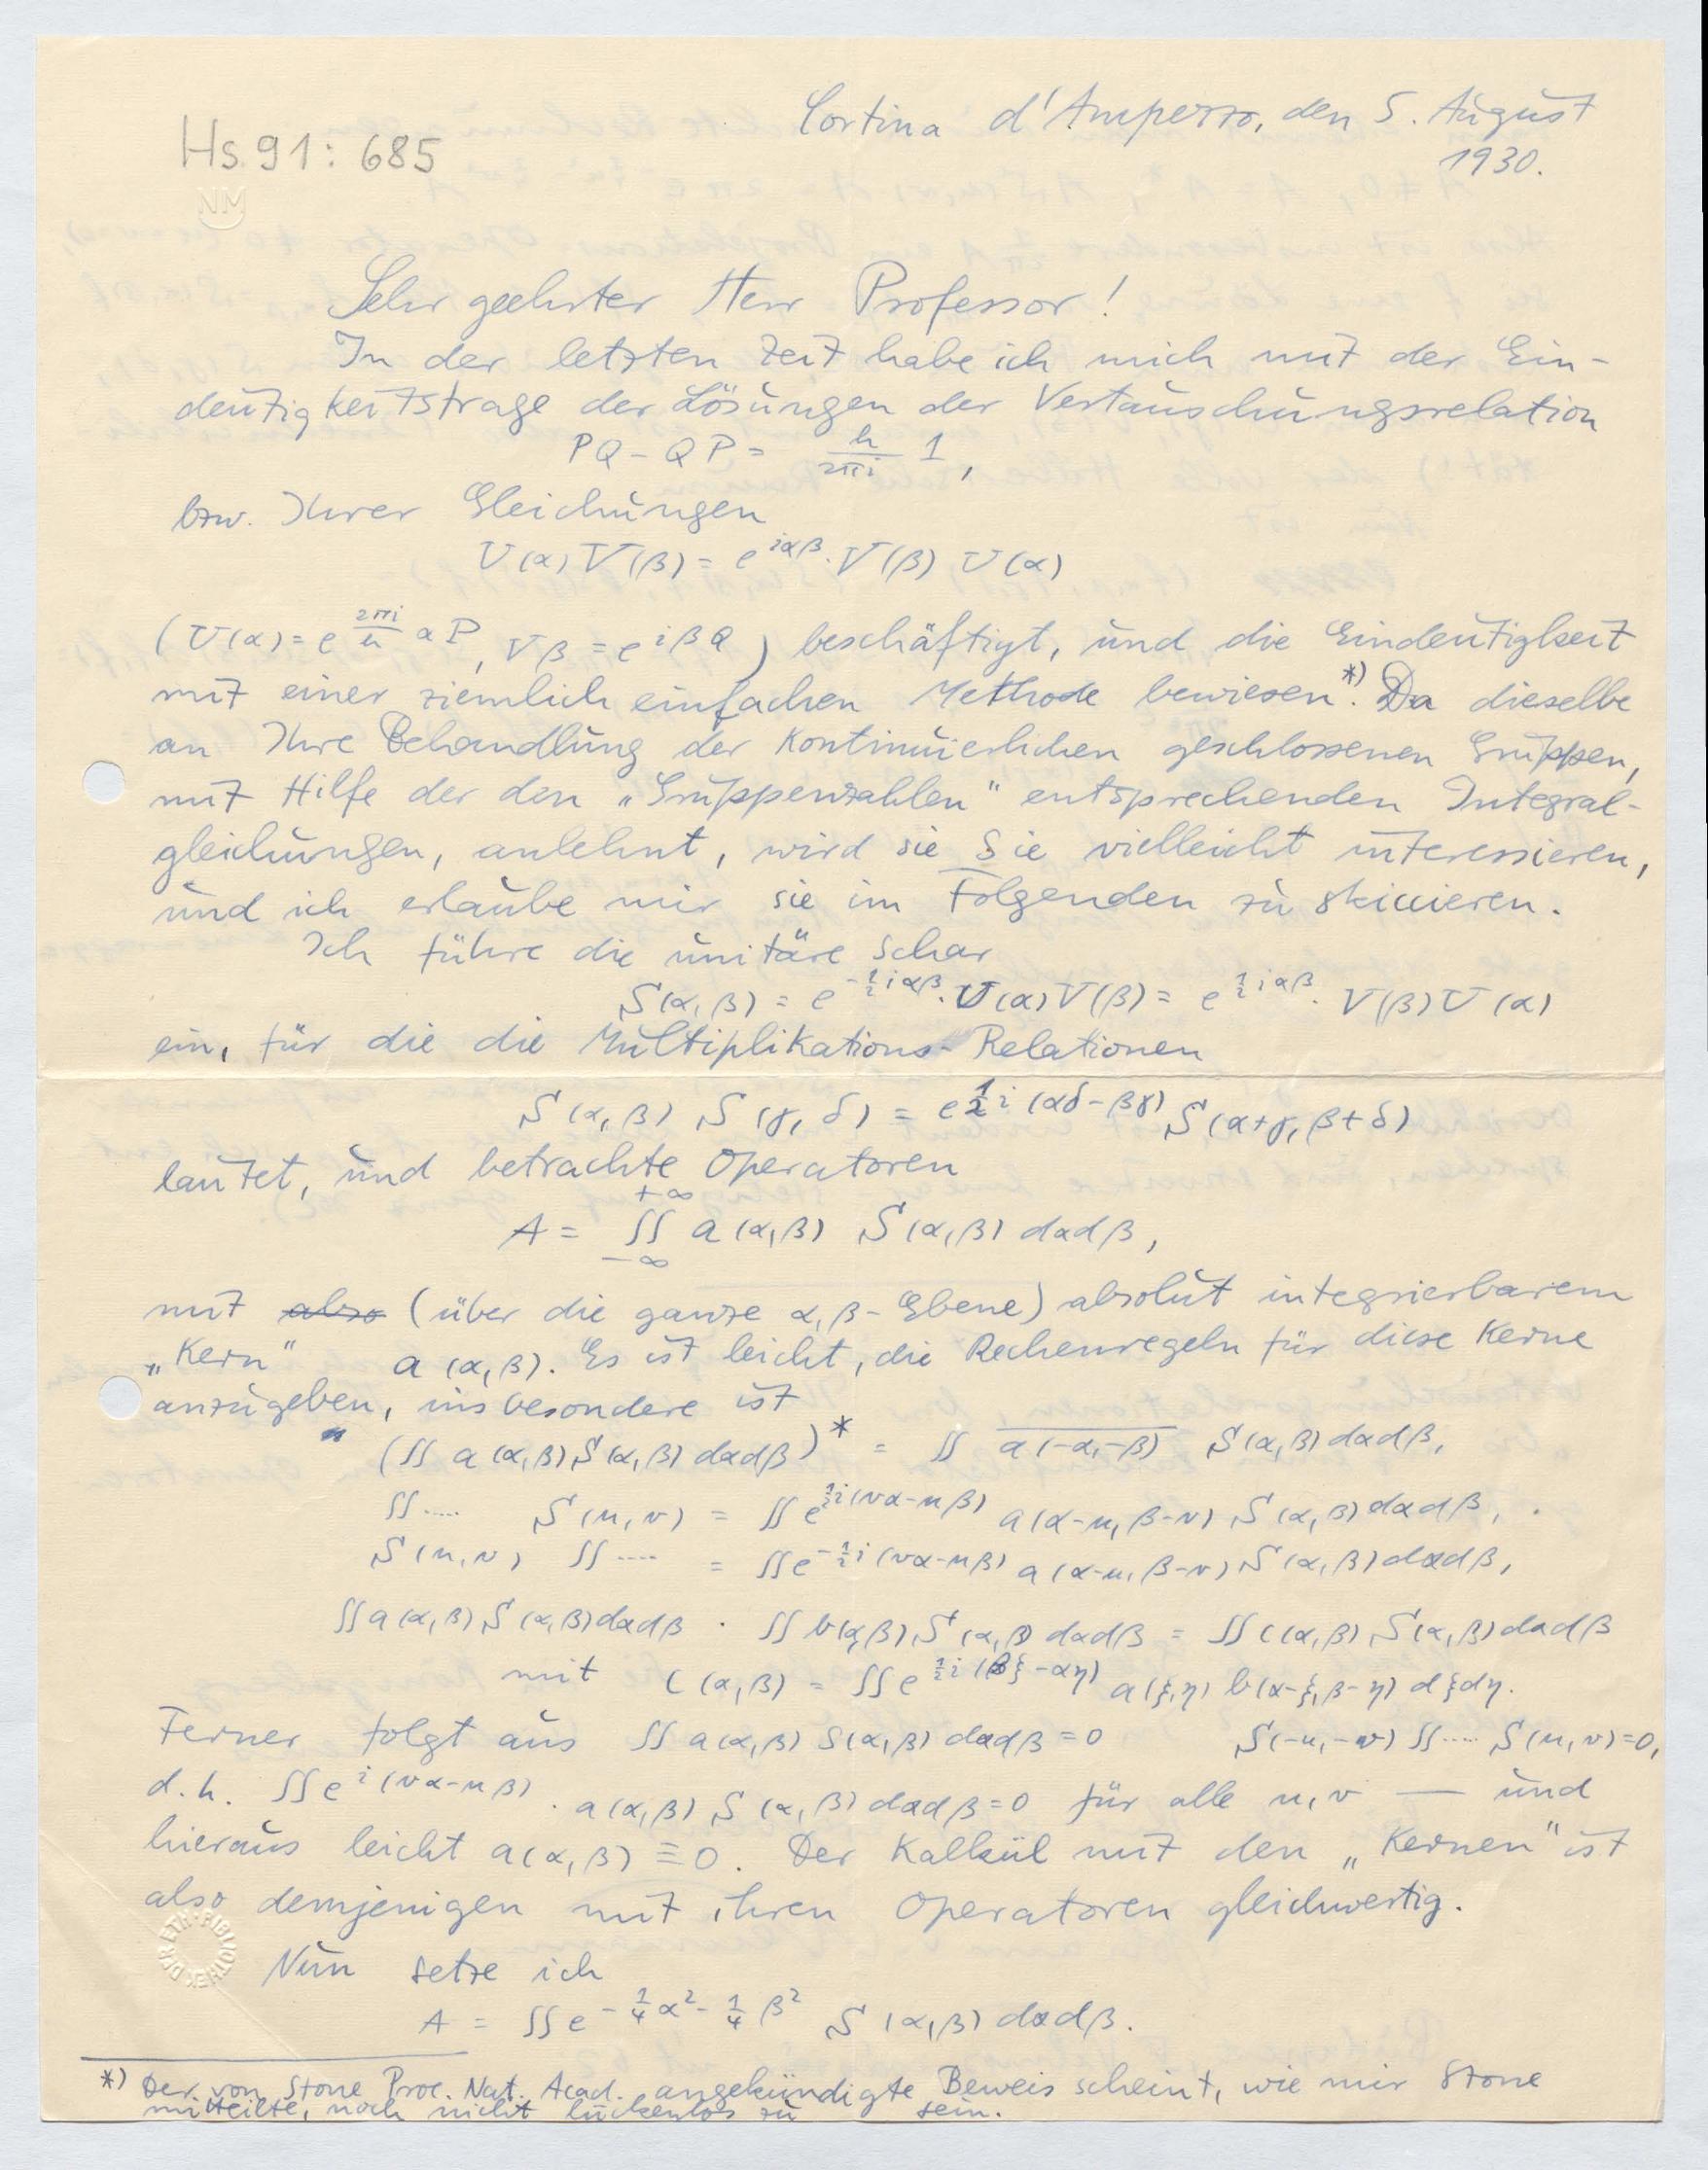 Cortina d'Ampezzo, den 5. August
1930.
Hs 91: 685
NM
Sehr geehrter Herr Professor!
In der letzten Zeit habe ich mich mit der Ein-
deutigkeitsfrage der Lösungen der Vertauschungsrelation
PQ - QP = h/2πi 1,
bzw. Ihrer Gleichungen
U(α) V(β) = e^{iαβ}. V(β) U(α)
(U(α) = e^{2πi/h αP}, Vβ = e^{iβQ}) beschäftigt, und die Eindeutigkeit
mit einer ziemlich einfachen Methode bewiesen.*) Da dieselbe
an Ihre Behandlung der kontinuierlichen geschlossenen Gruppen,
mit Hilfe der den „Gruppenzahlen" entsprechenden Integral-
gleichungen, anlehnt, wird sie Sie vielleicht interessieren,
und ich erlaube mir sie im Folgenden zu skiccieren.
Ich führe die unitäre Schar
S(α,β) = e^{-1/2 iαβ}. U(α) V(β) = e^{1/2 iαβ}. V(β) U(α)
ein, für die die Multiplikations-Relationen
S(α,β) S(γ,δ) = e^{1/2 i(αδ-βγ)} S(α+γ, β+δ)
lautet, und betrachte Operatoren
A = ∬_{-∞}^{+∞} a(α,β) S(α,β) dαdβ,
mit abso (über die ganze α,β-Ebene) absolut integrierbarem
„Kern" a(α,β). Es ist leicht, die Rechenregeln für diese Kerne
anzugeben, insbesondere ist
(∬ a(α,β) S(α,β) dαdβ)* = ∬ \overline{a(-α,-β)} S(α,β) dαdβ,
∬..... S(u,v) = ∬ e^{1/2 i(vα-uβ)} a(α-u, β-v) S(α,β) dαdβ,
S(u,v) ∬..... = ∬ e^{-1/2 i(vα-uβ)} a(α-u, β-v) S(α,β) dαdβ,
∬ a(α,β) S(α,β) dαdβ · ∬ b(α,β) S(α,β) dαdβ = ∬ c(α,β) S(α,β) dαdβ
mit c(α,β) = ∬ e^{1/2 i(βξ-αη)} a(ξ,η) b(α-ξ, β-η) dξdη.
Ferner folgt aus ∬ a(α,β) S(α,β) dαdβ = 0 S(-u,-v) ∬..... S(u,v) = 0,
d.h. ∬ e^{i(vα-uβ)}. a(α,β) S(α,β) dαdβ = 0 für alle u,v — und
hieraus leicht a(α,β) ≡ 0. Der Kalkül mit den „Kernen" ist
also demjenigen mit ihren Operatoren gleichwertig.
Nun setze ich
A = ∬ e^{-1/4 α² - 1/4 β²} S(α,β) dαdβ.
*) Der von Stone Proc. Nat. Acad. angekündigte Beweis scheint, wie mir Stone
mitteilte, noch nicht lückenlos zu sein.
DER ETH-BIBLIOTHEK